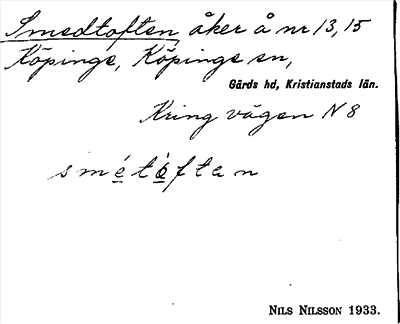 Smedtoften åker å nr 13, 15
Köpinge, Köpinge sn,
Gärds hd, Kristianstads län.
Kring vägen N 8
smétòftan
NILS NILSSON 1933.